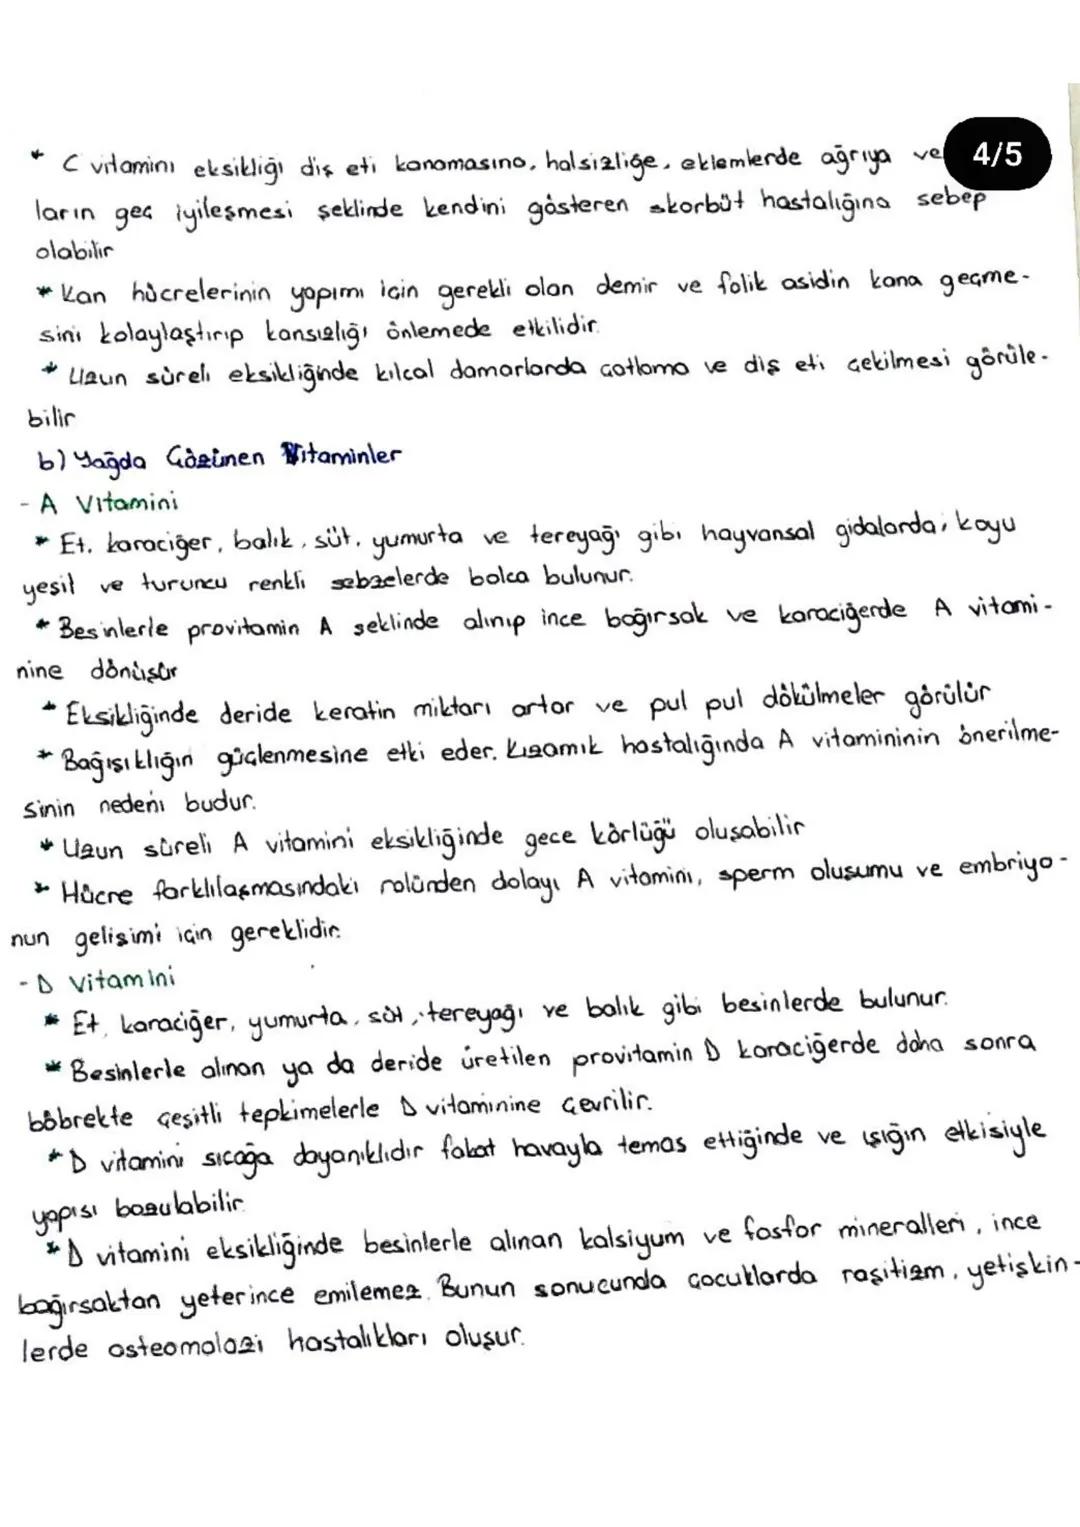 * C vitamini eksikliği diş eti kanamasına, halsizliğe, eklemlerde ağrıya ve
4/5
ların geç iyileşmesi şeklinde kendini gösteren skorbüt hastalığına sebep
olabilir
* Kan hücrelerinin yapımı için gerekli olan demir ve folik asidin kana geçme-
sini kolaylaştırıp kansızlığı önlemede etkilidir.
* Uzun süreli eksikliğinde kılcal damarlarda çatlama ve diş eti çekilmesi görüle-
bilir
b) Yağda Çözünen Vitaminler
- A Vitamini
* Et, karaciğer, balık, süt, yumurta ve tereyağı gibi hayvansal gıdalarda, koyu
yeşil ve turuncu renkli sebzelerde bolca bulunur.
* Besinlerle provitamin A şeklinde alınıp ince bağırsak ve karaciğerde A vitami-
nine dönüşür
* Eksikliğinde deride keratin miktarı artar ve pul pul dökülmeler görülür
* Bağışıklığın güçlenmesine etki eder. Kızamık hastalığında A vitamininin önerilme-
sinin nedeni budur.
* Uzun süreli A vitamini eksikliğinde gece körlüğü oluşabilir
* Hücre farklılaşmasındaki rolünden dolayı A vitamini, sperm oluşumu ve embriyo-
nun gelişimi için gereklidir.
- D Vitamini
* Et, karaciğer, yumurta, süt, tereyağı ve balık gibi besinlerde bulunur.
* Besinlerle alınan ya da deride üretilen provitamin D karaciğerde daha sonra
böbrekte çeşitli tepkimelerle D vitaminine çevrilir.
* D vitamini sıcağa dayanıklıdır fakat havayla temas ettiğinde ve ışığın etkisiyle
yapısı bozulabilir
* D vitamini eksikliğinde besinlerle alınan kalsiyum ve fosfor mineralleri, ince
bağırsaktan yeterince emilemez. Bunun sonucunda çocuklarda raşitizm, yetişkin-
lerde osteomalazi hastalıkları oluşur.